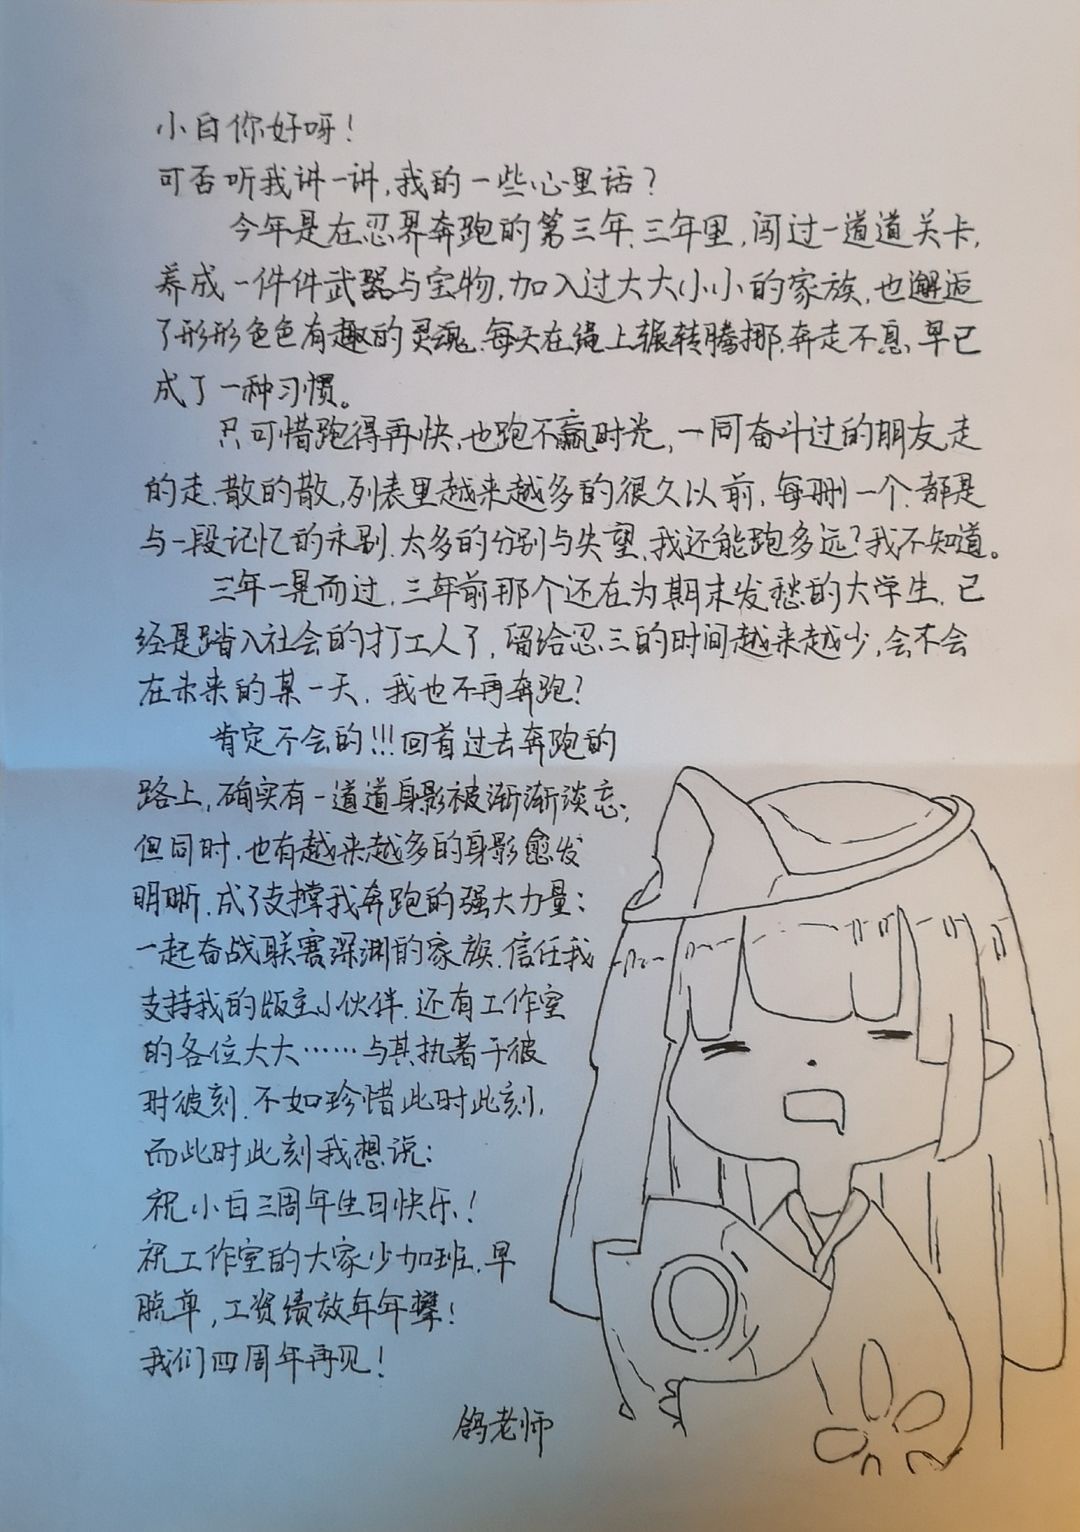 小白你好呀！
可否听我讲一讲，我的一些心里话？
今年是在忍界奔跑的第三年，三年里，闯过一道道关卡，
养成一件件武器与宝物，加入过大大小小的家族，也邂逅
了形形色色有趣的灵魂，每天在绳上辗转腾挪，奔走不息，早已
成了一种习惯。
只可惜跑得再快，也跑不赢时光，一同奋斗过的朋友，走
的走，散的散，列表里越来越多的很久以前，每删一个，都是
与一段记忆的永别，太多的分别与失望，我还能跑多远？我不知道。
三年一晃而过，三年前那个还在为期末发愁的大学生，已
经是踏入社会的打工人了，留给忍三的时间越来越少，会不会
在未来的某一天，我也不再奔跑？
肯定不会的！！！回首过去奔跑的
路上，确实有一道道身影被渐渐淡忘；
但同时，也有越来越多的身影愈发
明晰，成了支撑我奔跑的强大力量：
一起奋战联赛深渊的家族，信任我
支持我的版主小伙伴，还有工作室
的各位大大……与其执着于彼
时彼刻，不如珍惜此时此刻，
而此时此刻我想说：
祝小白三周年生日快乐！
祝工作室的大家少加班，早
脱单，工资绩效年年攀！
我们四周年再见！
鸽老师